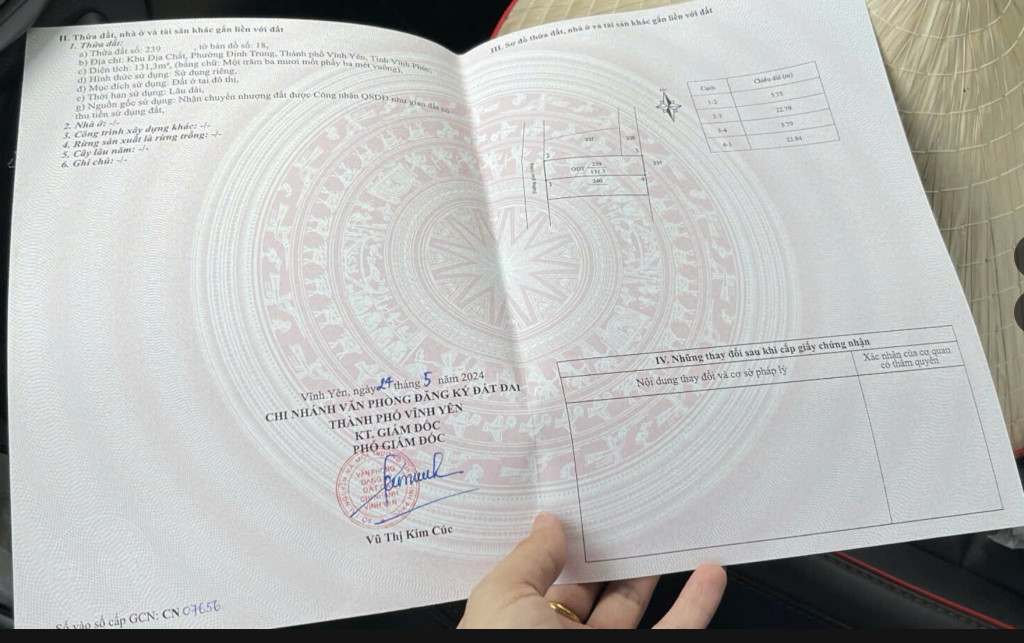 II. Thửa đất, nhà ở và tài sản khác gắn liền với đất
1. Thửa đất:
a) Thửa đất số: 239 , tờ bản đồ số: 18,
b) Địa chỉ: Khu Địa Chất, Phường Định Trung, Thành phố Vĩnh Yên, Tỉnh Vĩnh Phúc,
c) Diện tích: 131,3m², (bằng chữ: Một trăm ba mươi mốt phẩy ba mét vuông),
d) Hình thức sử dụng: Sử dụng riêng,
đ) Mục đích sử dụng: Đất ở tại đô thị,
e) Thời hạn sử dụng: Lâu dài,
g) Nguồn gốc sử dụng: Nhận chuyển nhượng đất được Công nhận QSDĐ như giao đất có
thu tiền sử dụng đất,
2. Nhà ở: -/-
3. Công trình xây dựng khác: -/-
4. Rừng sản xuất là rừng trồng: -/-
5. Cây lâu năm: -/-
6. Ghi chú: -/-
Vĩnh Yên, ngày 24 tháng 5 năm 2024
CHI NHÁNH VĂN PHÒNG ĐĂNG KÝ ĐẤT ĐAI
THÀNH PHỐ VĨNH YÊN
KT. GIÁM ĐỐC
PHÓ GIÁM ĐỐC
VĂN PHÒNG
ĐĂNG
ĐẤT
CHI NHÁNH
VĨNH YÊN
Vũ Thị Kim Cúc
Số vào sổ cấp GCN: CN 07656
III. Sơ đồ thửa đất, nhà ở và tài sản khác gắn liền với đất
Cạnh Chiều dài (m)
1-2 5.75
2-3 22.79
3-4 5.79
4-1 22.84
237
238
2
3
ODT 239
131.3
1
4
240
IV. Những thay đổi sau khi cấp giấy chứng nhận
Nội dung thay đổi và cơ sở pháp lý
Xác nhận của cơ quan
có thẩm quyền